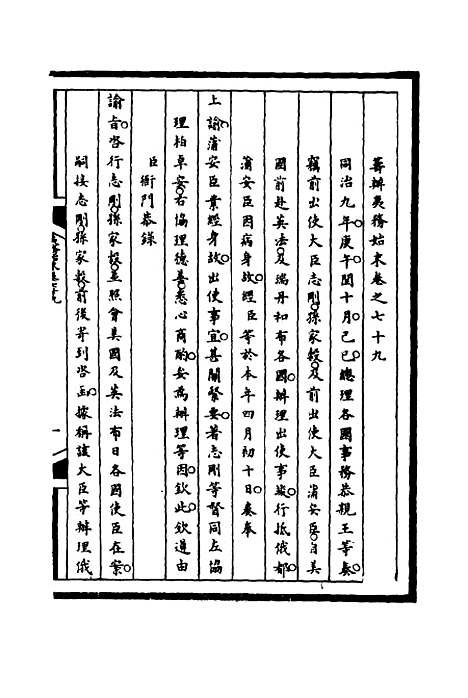 籌辦夷務始末卷之七十九
同治九年庚午閏十月己巳總理各國事務恭親王等奏
竊前出使大臣志剛孫家穀及前出使大臣蒲安臣自美
國前赴英法及瑞丹和布各國辦理出使事竣行抵俄都
蒲安臣因病身故經臣等於本年四月初十日奏奉
上諭蒲安臣業經身故出使事宜甚關緊要著志剛等督同左協
理柏卓安右協理德善悉心商酌妥為辦理等因欽此欽遵由
臣衙門恭錄
諭旨咨行志剛孫家穀並照會美國及英法布日各國使臣在案
嗣接志剛孫家穀前後寄到咨函據稱該大臣等辦理俄